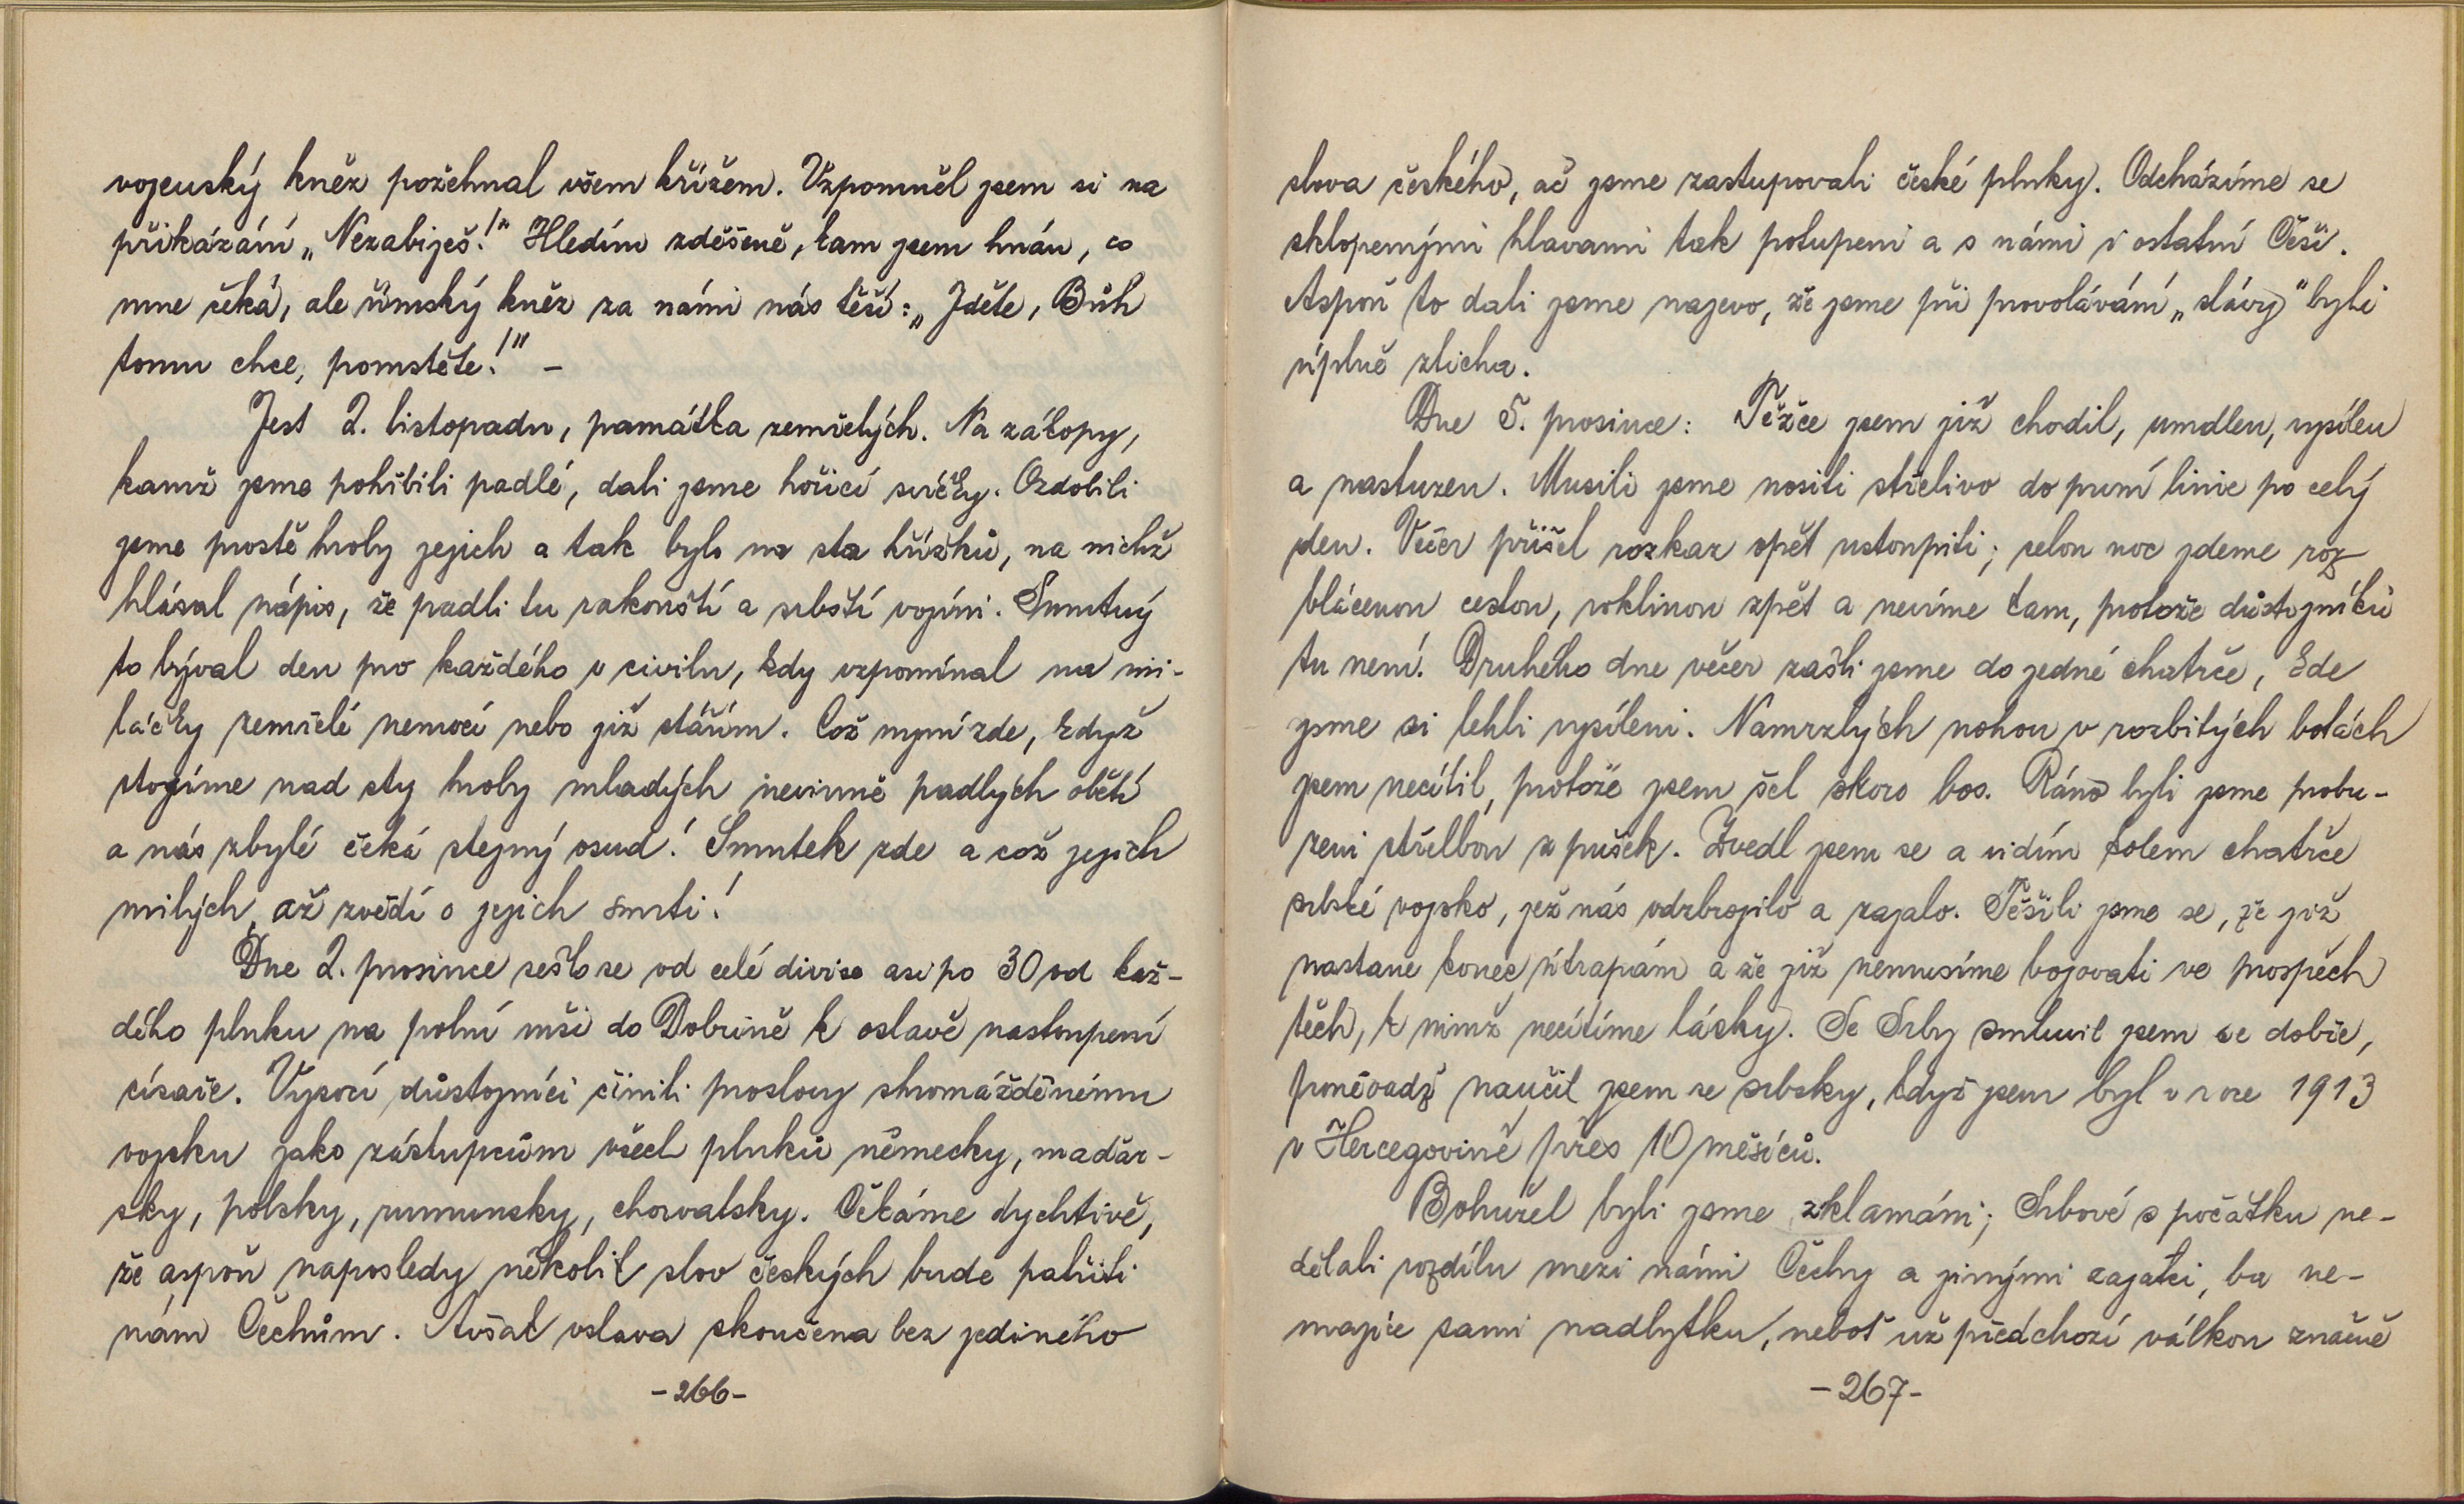 vojenský kněz požehnal všem křížem. Vzpomněl jsem si na
přikázání „Nezabiješ!" Hledím zděšeně, kam jsem hnán, co
mne čeká, ale římský kněz za námi nás těší: „Jděte, Bůh
tomu chce, pomstěte!" -
Jest 2. listopadu, památka zemřelých. Na zákopy,
kamž jsme pohřbili padlé, dali jsme hořící svíčky. Ozdobili
jsme prostě hroby jejich a tak bylo na sta křížků, na nichž
hlásal nápis, že padli tu rakouští a srbští vojíni. Smutný
to býval den pro každého v civilu, kdy vzpomínal na mi-
láčky zemřelé nemocí nebo již stářím. Což nyní zde, když
stojíme nad sty hroby mladých nevinně padlých obětí
a nás zbylé čeká stejný osud! Smutek zde a což jejich
milých, až zvědí o jejich smrti!
Dne 2. prosince sešlo se od celé divise asi po 30 od kaž-
dého pluku na polní mši do Dobrině k oslavě nastoupení
císaře. Vysocí důstojníci činili proslovy shromážděnému
vojsku jako zástupcům všech pluků německy, maďar-
sky, polsky, rumunsky, chorvatsky. Čekáme dychtivě,
že aspoň naposledy několik slov českých bude patřiti
nám Čechům. Avšak oslava skončena bez jediného
-266-
slova českého, ač jsme zastupovali české pluky. Odcházíme se
sklopenými hlavami tak potupeni a s námi i ostatní Češi.
Aspoň to dali jsme najevo, že jsme při provolávání „slávy" byli
úplně zticha.
Dne 5. prosince: Těžce jsem již chodil, umdlen, vysílen
a nastuzen. Musili jsme nositi střelivo do první linie po celý
den. Večer přišel rozkaz opět ustoupiti; celou noc jdeme roz
blácenou cestou, roklinou zpět a nevíme kam, protože důstojníků
tu není. Druhého dne večer zašli jsme do jedné chatrče, kde
jsme si lehli vysíleni. Namrzlých nohou v rozbitých botách
jsem necítil, protože jsem šel skoro bos. Ráno byli jsme probu-
zeni střelbou z pušek. Zvedl jsem se a vidím kolem chatrče
srbské vojsko, jež nás odzbrojilo a zajalo. Těšili jsme se, že již
nastane konec útrapám a že již nemusíme bojovati ve prospěch
těch, k nimž necítíme lásky. Se Srby smluvil jsem se dobře,
poněvadž naučil jsem se srbsky, když jsem byl v roce 1913
v Hercegovině přes 10 měsíců.
Bohužel byli jsme zklamáni; Srbové s počátku ne-
dělali rozdílu mezi námi Čechy a jinými zajatci, ba ne-
majíce sami nadbytku, neboť už předchozí válkou značně
-267-